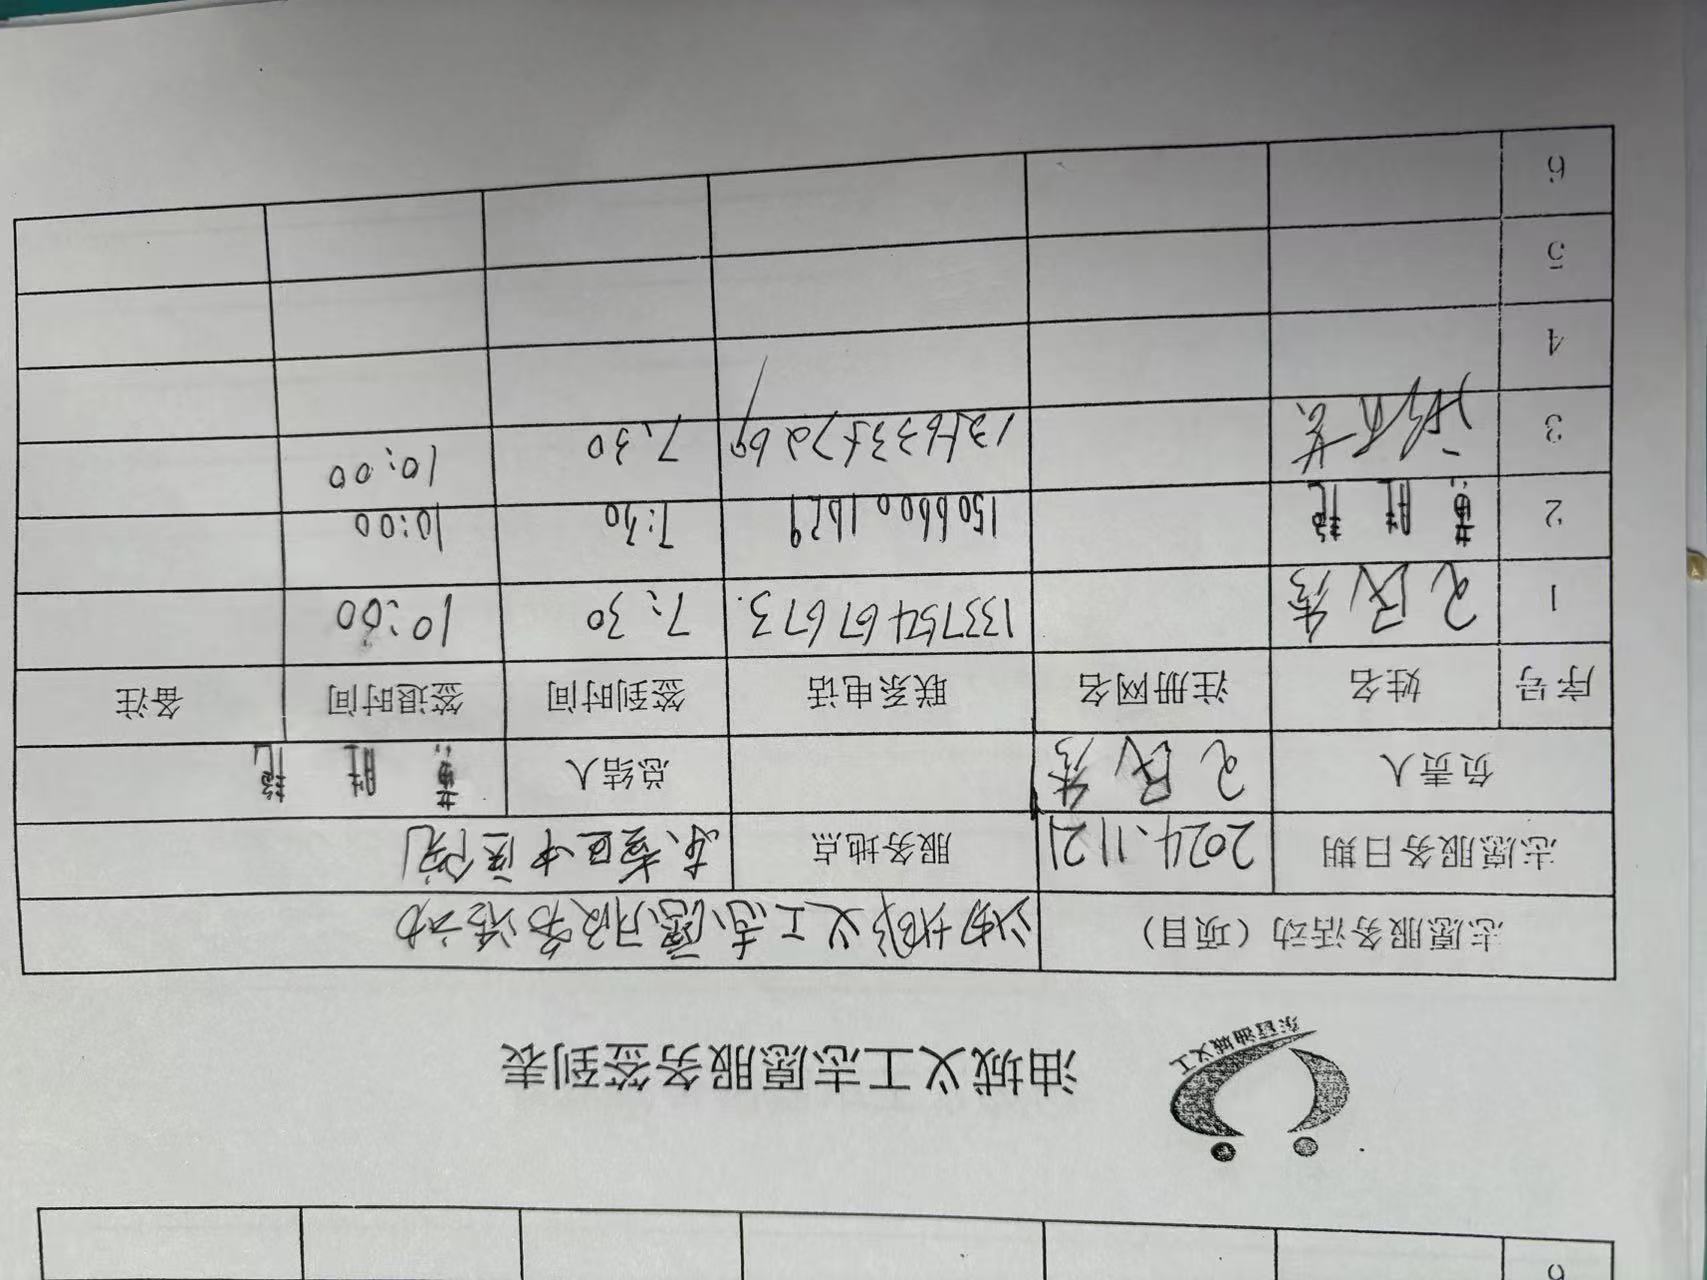 东营油城义工
油城义工志愿服务签到表
志愿服务活动（项目） 油城义工志愿服务活动
志愿服务日期 2024.11.21 服务地点 东营区中医院
负责人 民 总结人 黄 胜
序号 姓名 注册网名 联系电话 签到时间 签退时间 备注
1 民 13375467673. 7:30 10:00
2 黄 胜 15066001629 7:30 10:00
3 7:30 10:00
4
5
6
6